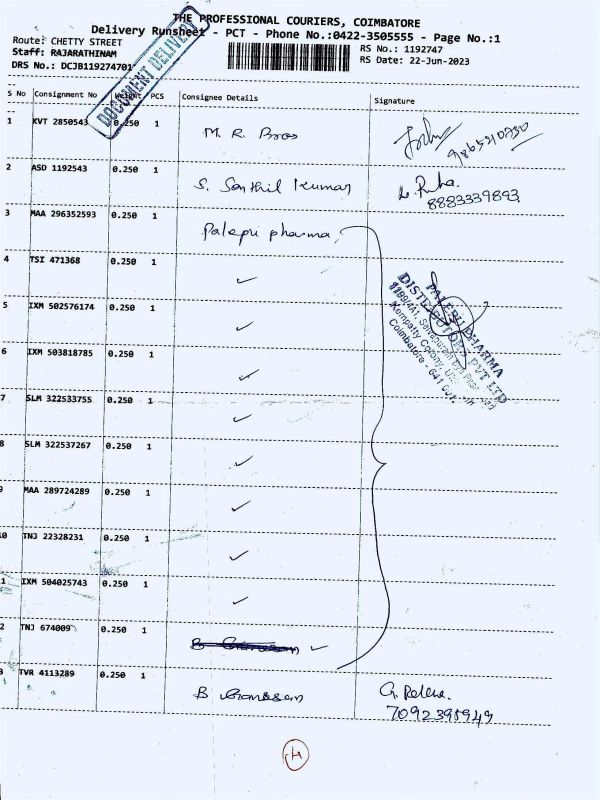 THE PROFESSIONAL COURIERS, COIMBATORE
Delivery Runsheet - PCT - Phone No.:0422-3505555 - Page No.:1
Route: CHETTY STREET
RS No.: 1192747
Staff: RAJARATHINAM
RS Date: 22-Jun-2023
DRS No.: DCJB119274701
DOCUMENT DELIVERY
S No Consignment No Weight PCS Consignee Details Signature
1 KVT 2850543 0.250 1 M. R. Bros 9865210750
2 ASD 1192543 0.250 1 S. Senthil Kumar
8883339893
3 MAA 296352593 0.250 1 Palepu pharma
4 TSI 471368 0.250 1 ✓
PALEPU PHARMA
DISTRIBUTORS PVT LTD
Kempatty Colony,
Coimbatore - 641 001.
5 IXM 502576174 0.250 1 ✓
6 IXM 503818785 0.250 1 ✓
7 SLM 322533755 0.250 1 ✓
8 SLM 322537267 0.250 1 ✓
9 MAA 289724289 0.250 1 ✓
10 TNJ 22328231 0.250 1 ✓
11 IXM 504025743 0.250 1 ✓
2 TNJ 674009 0.250 1 ✓
3 TVR 4113289 0.250 1 B Ganesan
7092395949